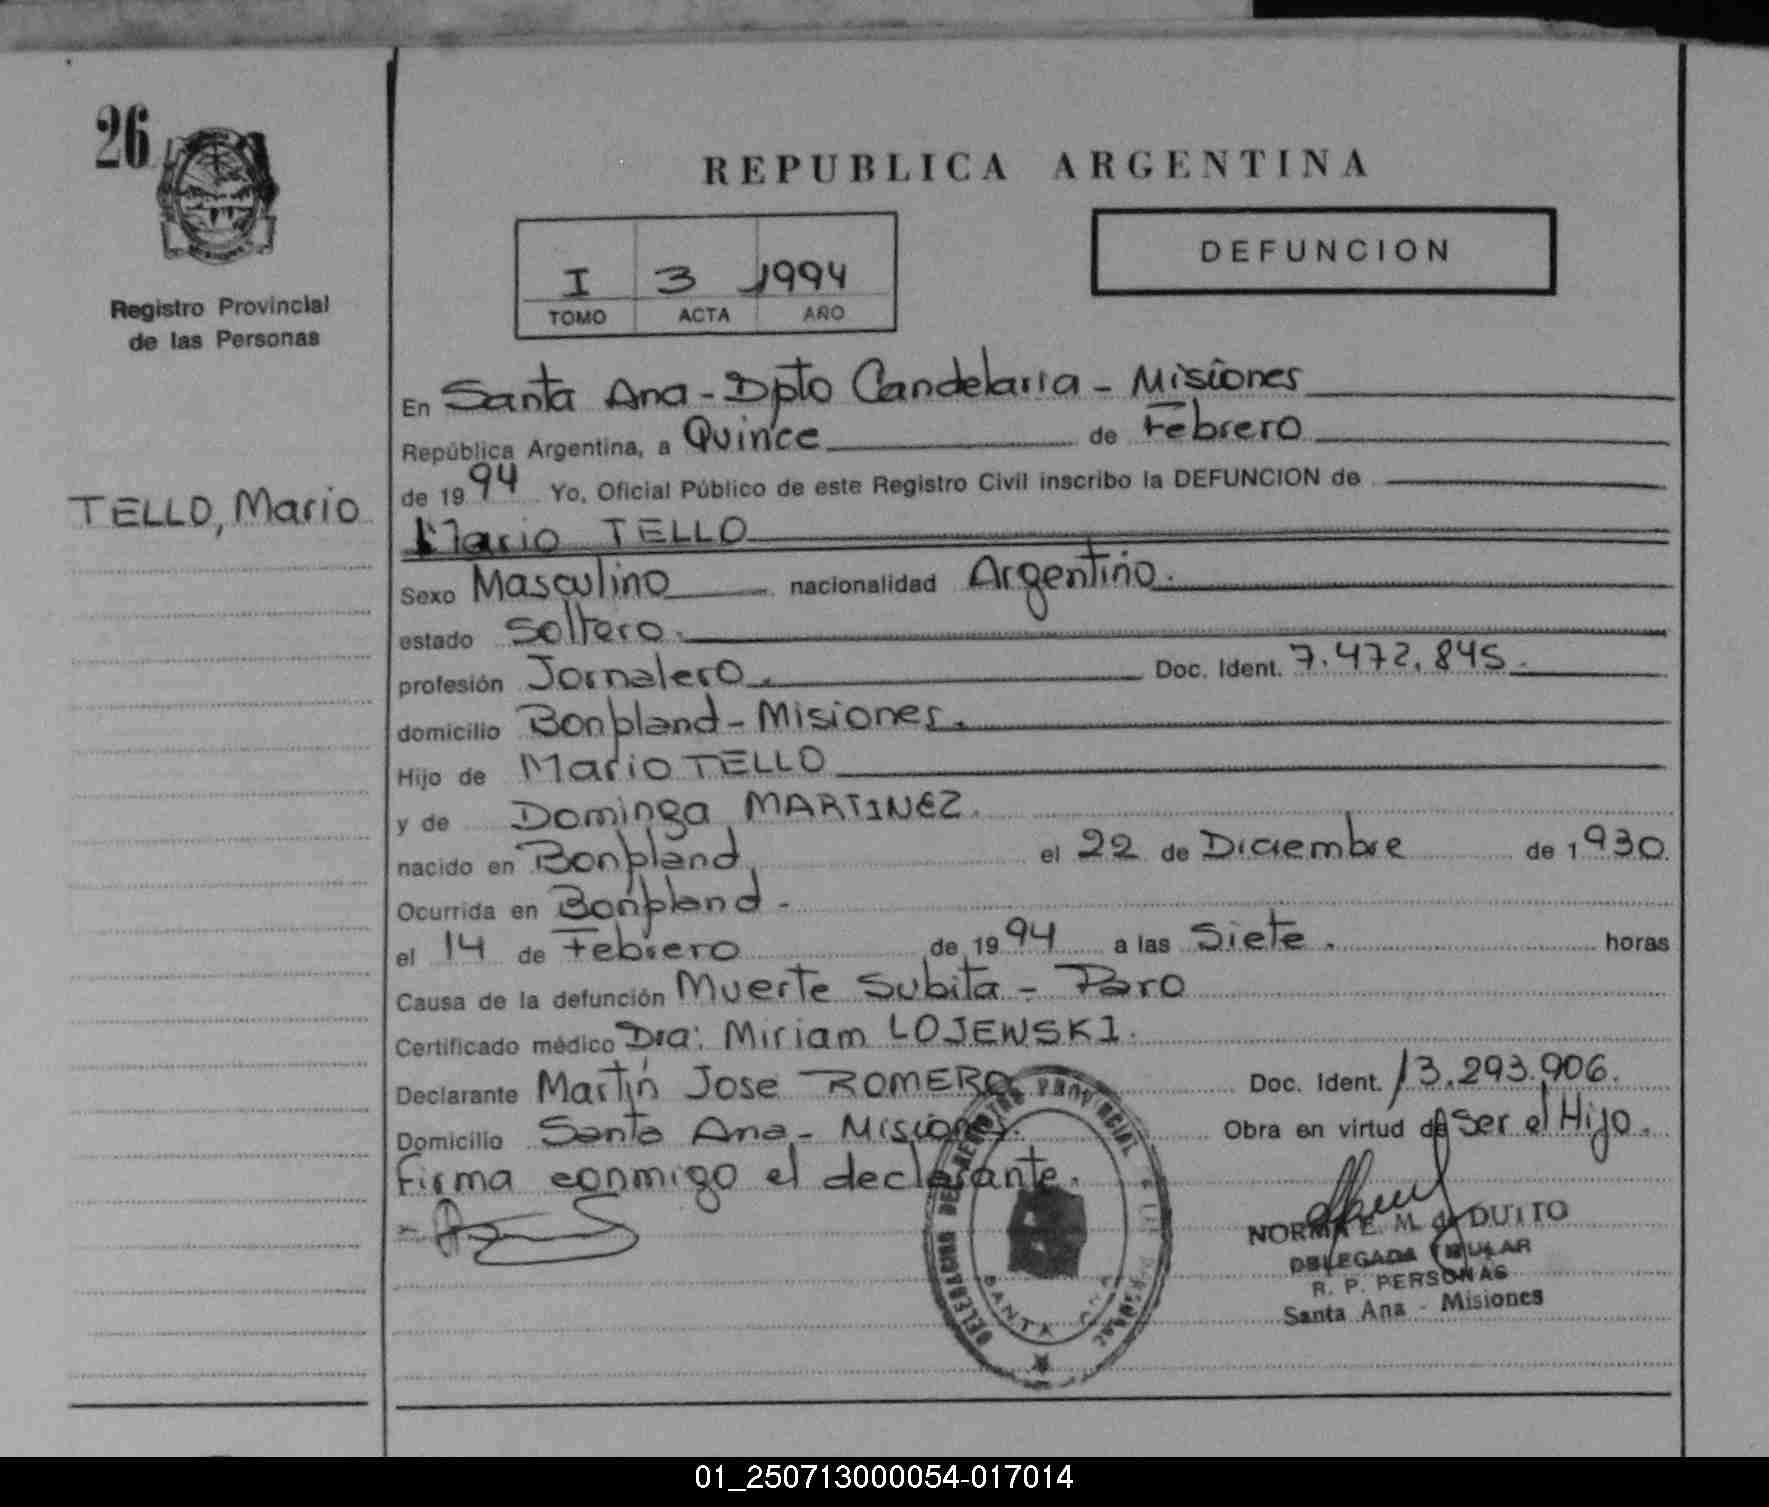 26
Registro Provincial
de las Personas
TELLO, Mario
REPUBLICA ARGENTINA
I 3 1994
TOMO ACTA AÑO
DEFUNCION
En Santa Ana - Dpto Candelaria - Misiones
República Argentina, a Quince de Febrero
de 1994 Yo, Oficial Público de este Registro Civil inscribo la DEFUNCION de
Mario TELLO
Sexo Masculino nacionalidad Argentino.
estado Soltero.
profesión Jornalero. Doc. Ident. 7.472.845.
domicilio Bonpland - Misiones.
Hijo de Mario TELLO
y de Dominga MARTINEZ.
nacido en Bonpland el 22 de Diciembre de 1930.
Ocurrida en Bonpland -
el 14 de Febrero de 1994 a las Siete. horas
Causa de la defunción Muerte Subita - Paro
Certificado médico Dra: Miriam LOJEWSKI.
Declarante Martín Jose ROMERO Doc. Ident. 13.293.906.
Domicilio Santa Ana - Misiones. Obra en virtud de Ser el Hijo.
Firma conmigo el declarante.
DELEGACION DEL REGISTRO PROVINCIAL DE LAS PERSONAS
SANTA ANA
NORMA E. M. de DUITO
DELEGADA TITULAR
R. P. PERSONAS
Santa Ana - Misiones
01_250713000054-017014